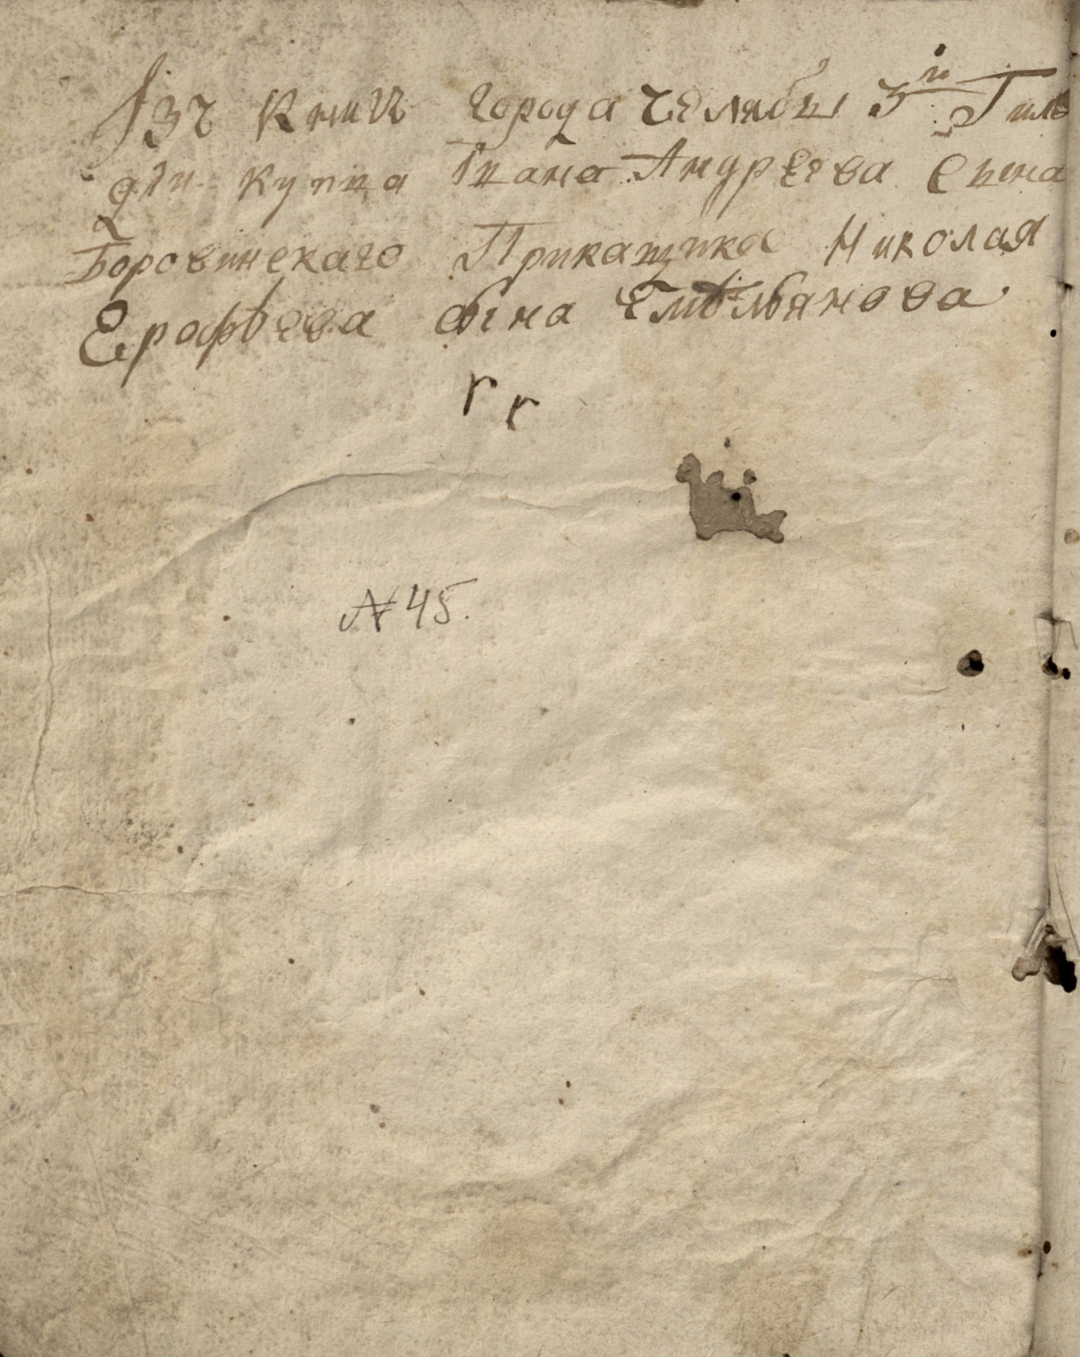 Изъ Книгъ города Челябы 3й Гиль
дїи купца Ивана Андреева Сына
Боровинскаго Прикащика Николая
Ерофѣева сына Емельянова
г г
№ 45.